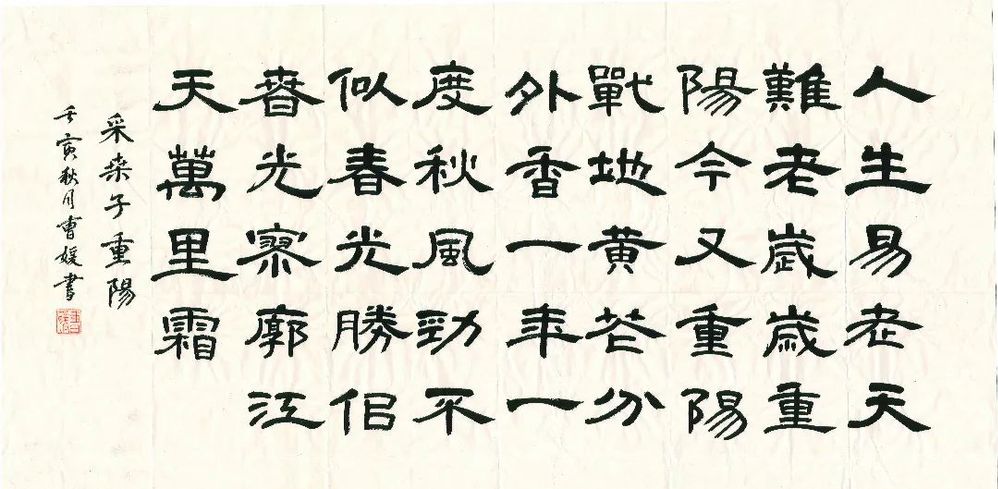 人生易老天
難老歲歲重
陽今又重陽
戰地黄芲分
外香一年一
度秋風勁不
似春光勝佀
萅光寥廓江
天萬里霜
采桑子重陽
壬寅秋月曹媛書